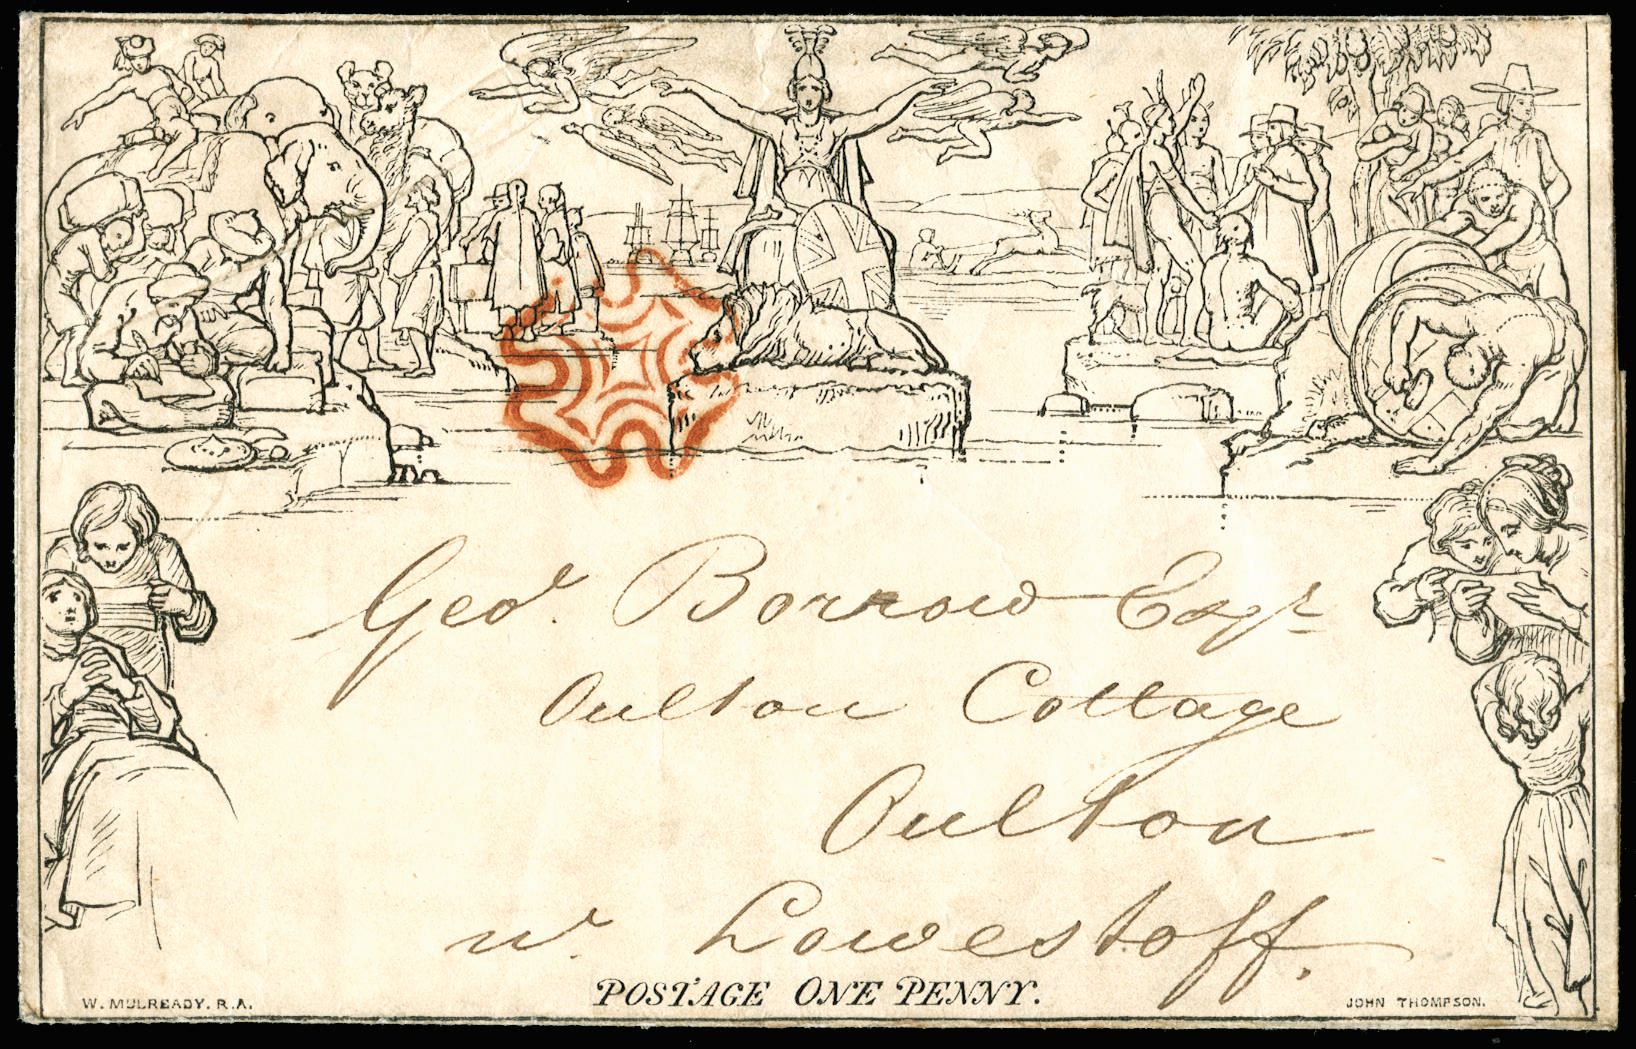 Geo.r Borrow Esqr
Oulton Cottage
Oulton
nr. Lowestoff.
POSTAGE ONE PENNY.
W. MULREADY. R.A.
JOHN THOMPSON.